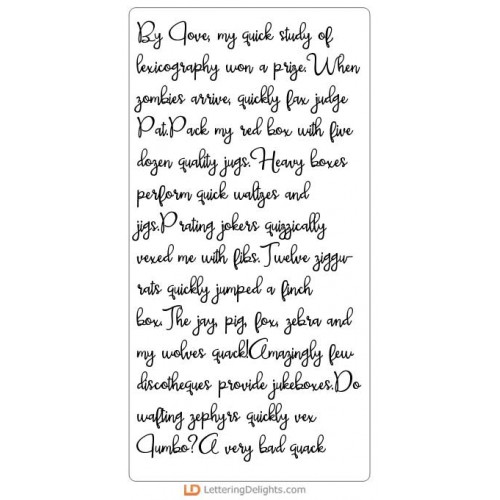 By Jove, my quick study of
lexicography won a prize.When
zombies arrive, quickly fax judge
Pat.Pack my red box with five
dozen quality jugs.Heavy boxes
perform quick waltzes and
jigs.Prating jokers quizzically
vexed me with fibs.Twelve ziggu-
rats quickly jumped a finch
box.The jay, pig, fox, zebra and
my wolves quack!Amazingly few
discotheques provide jukeboxes.Do
wafting zephyrs quickly vex
Jumbo?A very bad quack
LD LetteringDelights.com